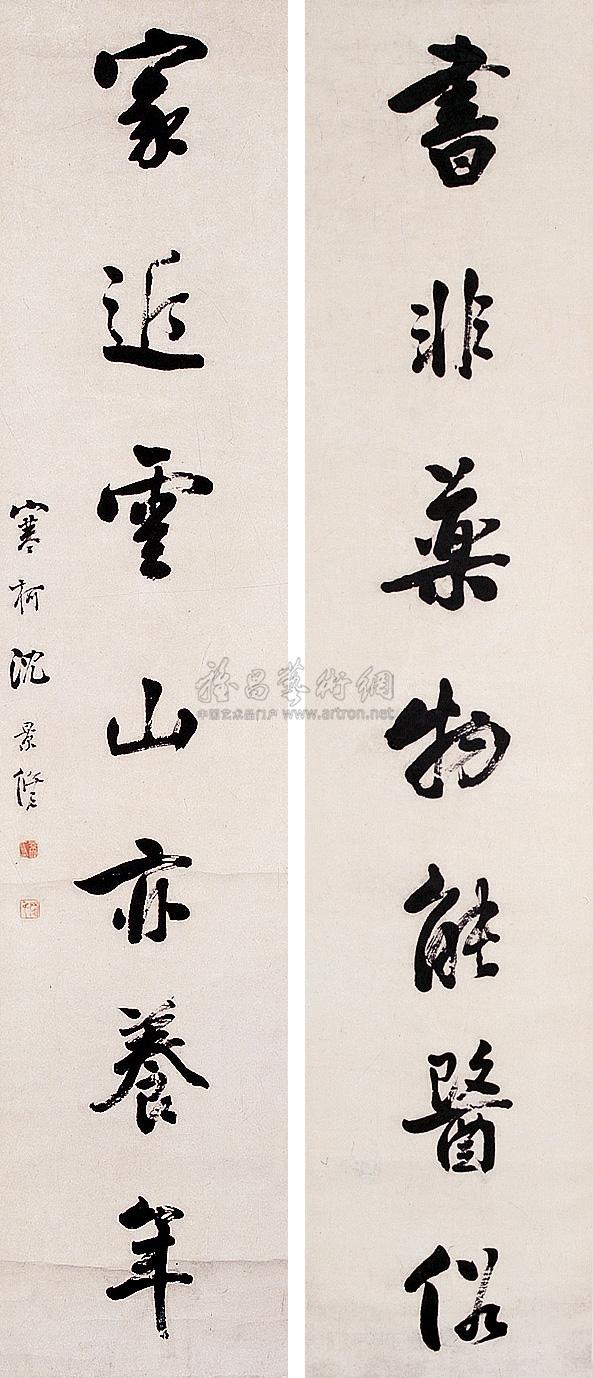 書非藥物能醫俗
家近雲山亦養年
寒柯沈景修
雅昌藝術網
中国艺术品门户 www.artron.net